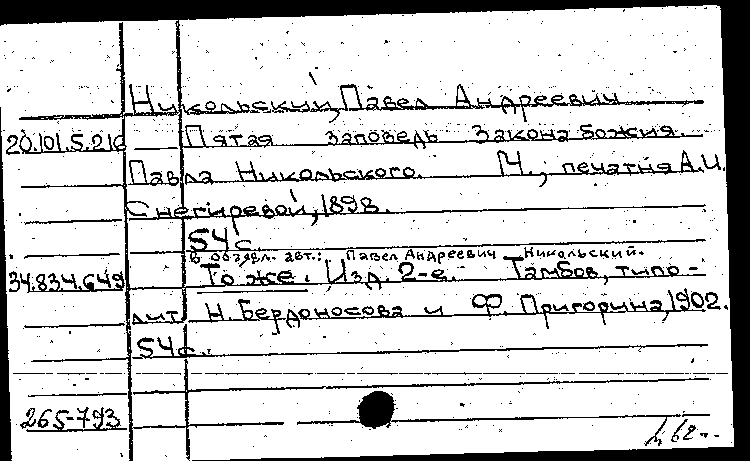 Никольский, Павел Андреевич
20.101.5.210 Пятая заповедь Закона Божия.
Павла Никольского. М., печатня А.И.
Снегиревой, 1898.
54 с.
В обозл. авт.: Павел Андреевич Никольский.
34.834.649 То же. Изд. 2-е. Тамбов, типо-
лит. Н. Бердоносова и Ф. Пригорина, 1902.
54 с.
265-793